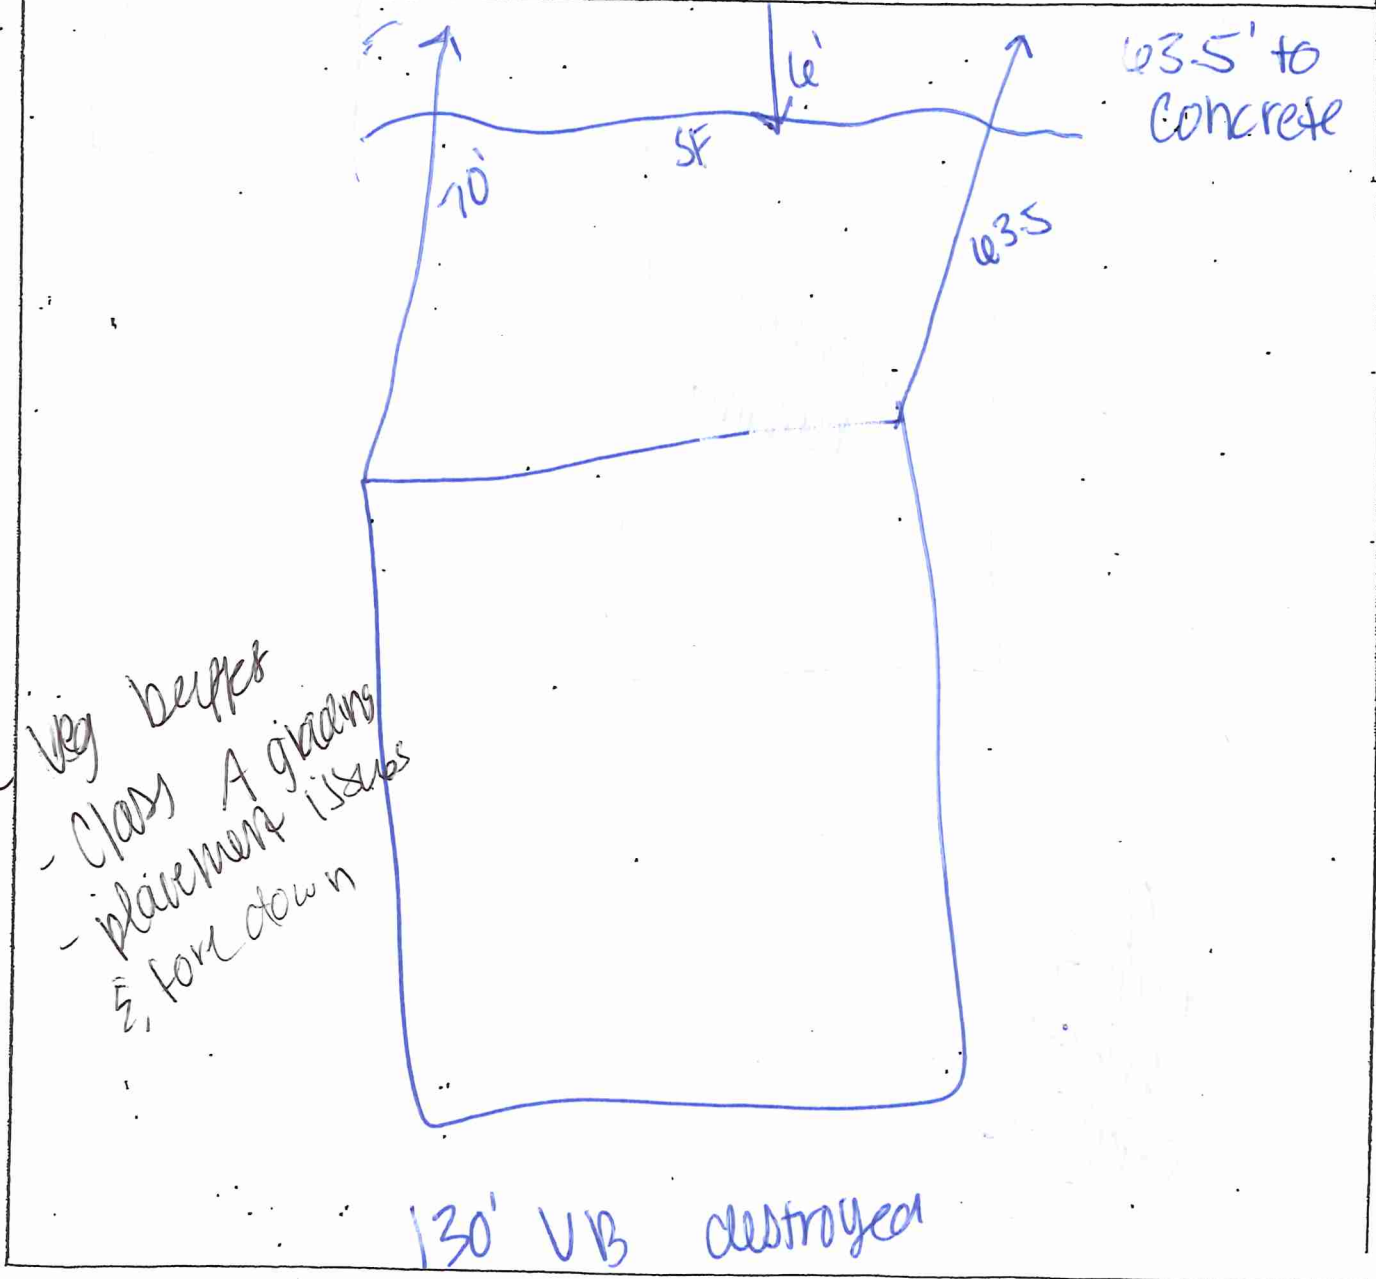 6'
63.5' to
concrete
SF
70'
63.5
veg buffer
- Class A grading
- placement issues
& tore down
130' VB destroyed